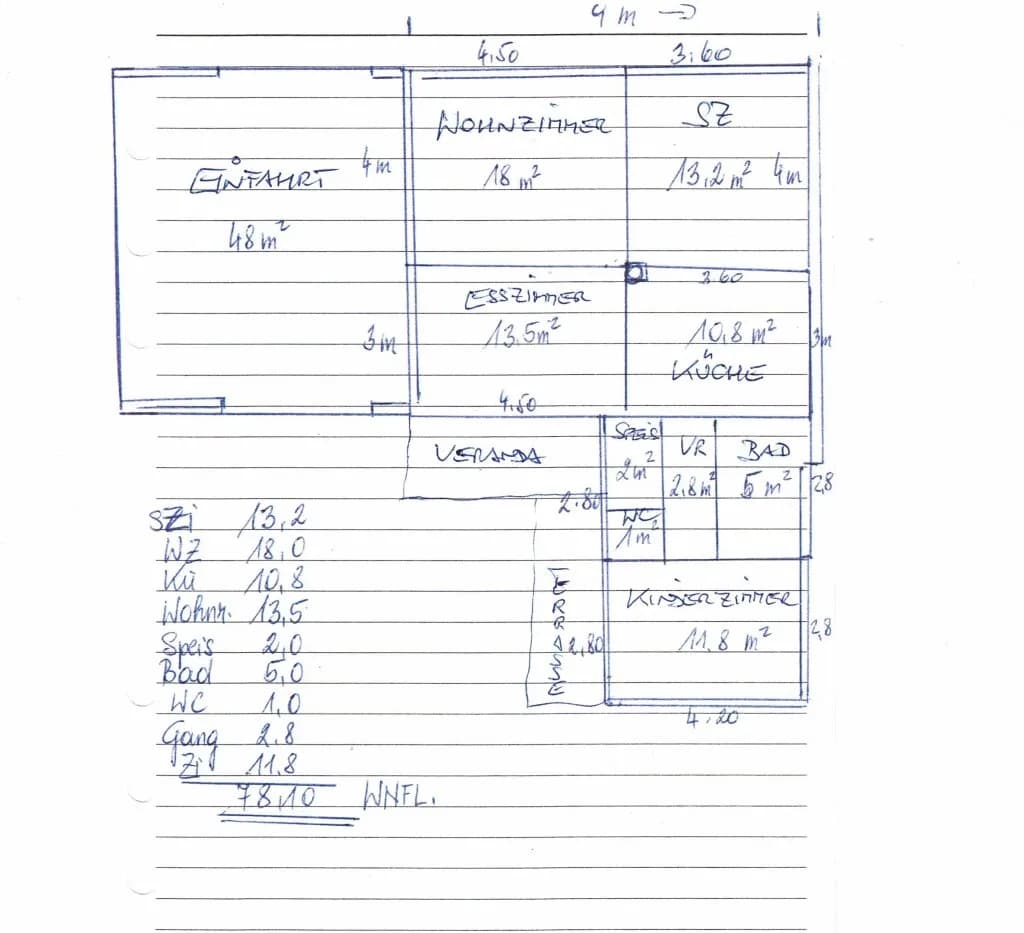 9 m →
4,50 3.60
WOHNZIMMER
18 m²
SZ
13,2 m² 4m
EINFAHRT
48 m²
4m
3m
ESSZIMMER
13.5m²
4.50
3.60
10,8 m²
KÜCHE
3m
VERANDA
SPEIS
2 m²
VR
2,8 m²
BAD
5 m²
2,8
2.80
WC
1 m²
TERRASSE
2,80
KINDERZIMMER
11.8 m²
2,8
4.20
SZi 13,2
WZ 18,0
Kü 10,8
Wohnr. 13,5
Speis 2,0
Bad 5,0
WC 1,0
Gang 2.8
Zi 11.8
78,10 WNFL.